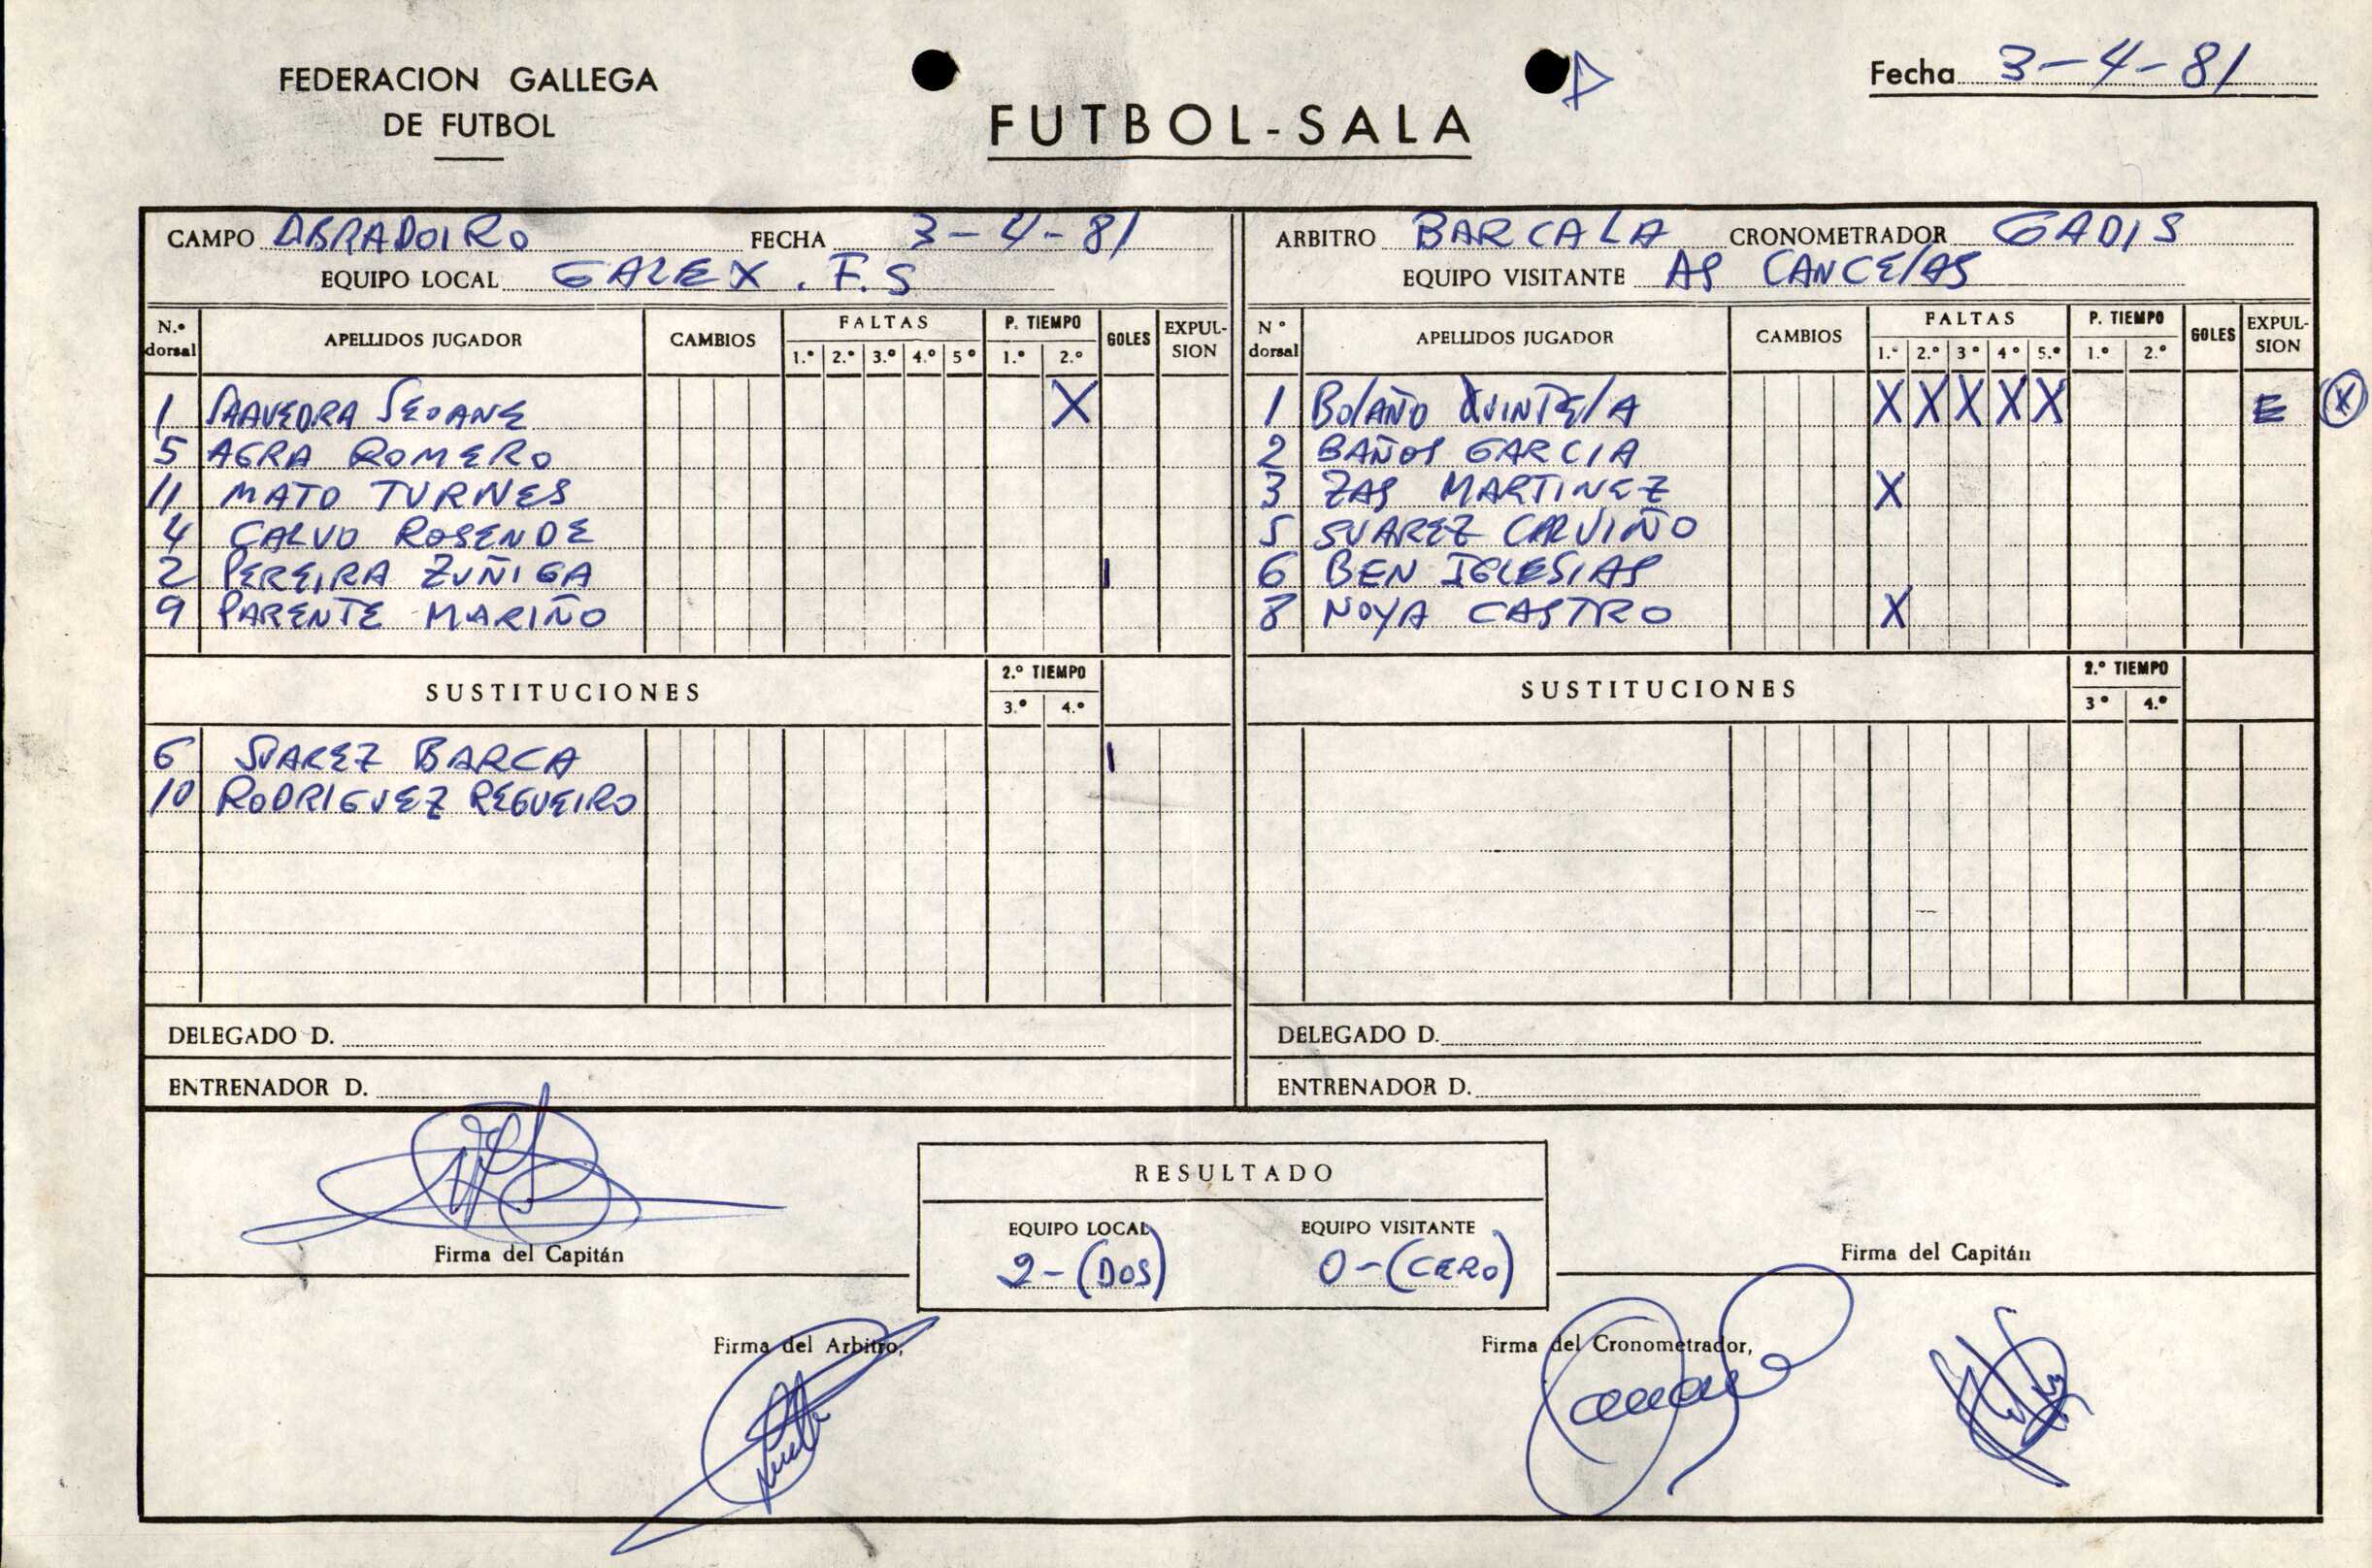 FEDERACION GALLEGA
DE FUTBOL
FUTBOL-SALA
Fecha 3-4-81
CAMPO OBRADOIRO FECHA 3-4-81
EQUIPO LOCAL GALEX . F.S
N.º dorsal APELLIDOS JUGADOR CAMBIOS FALTAS 1.º 2.º 3.º 4.º 5º P. TIEMPO 1.º 2.º GOLES EXPUL-SION
1 SAAVEDRA SEOANE X
5 AGRA ROMERO
11 MATO TURNES
4 CALVO ROSENDE
2 PEREIRA ZUÑIGA I
9 PARENTE MARIÑO
SUSTITUCIONES 2.º TIEMPO 3.º 4.º
6 SUAREZ BARCA I
10 RODRIGUEZ REGUEIRO
DELEGADO D.
ENTRENADOR D.
ARBITRO BARCALA CRONOMETRADOR GADIS
EQUIPO VISITANTE AS CANCELAS
Nº dorsal APELLIDOS JUGADOR CAMBIOS FALTAS 1.º 2.º 3º 4º 5.º P. TIEMPO 1.º 2.º GOLES EXPUL-SION
1 BOLAÑO QUINTELA X X X X X E X
2 BAÑOS GARCIA
3 ZAS MARTINEZ X
5 SUAREZ CALVIÑO
6 BEN IGLESIAS
8 NOYA CASTRO X
SUSTITUCIONES 2.º TIEMPO 3º 4.º
DELEGADO D.
ENTRENADOR D.
RESULTADO
EQUIPO LOCAL EQUIPO VISITANTE
2-(DOS) 0-(CERO)
Firma del Capitán
Firma del Capitán
Firma del Arbitro,
Firma del Cronometrador,